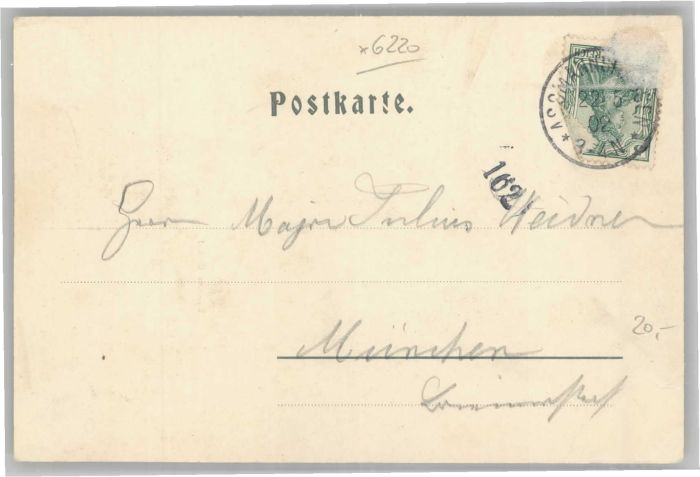 *6220
Postkarte.
ASSMANNSHAUSEN
162
Herrn Major Julius Weidner
20,-
München